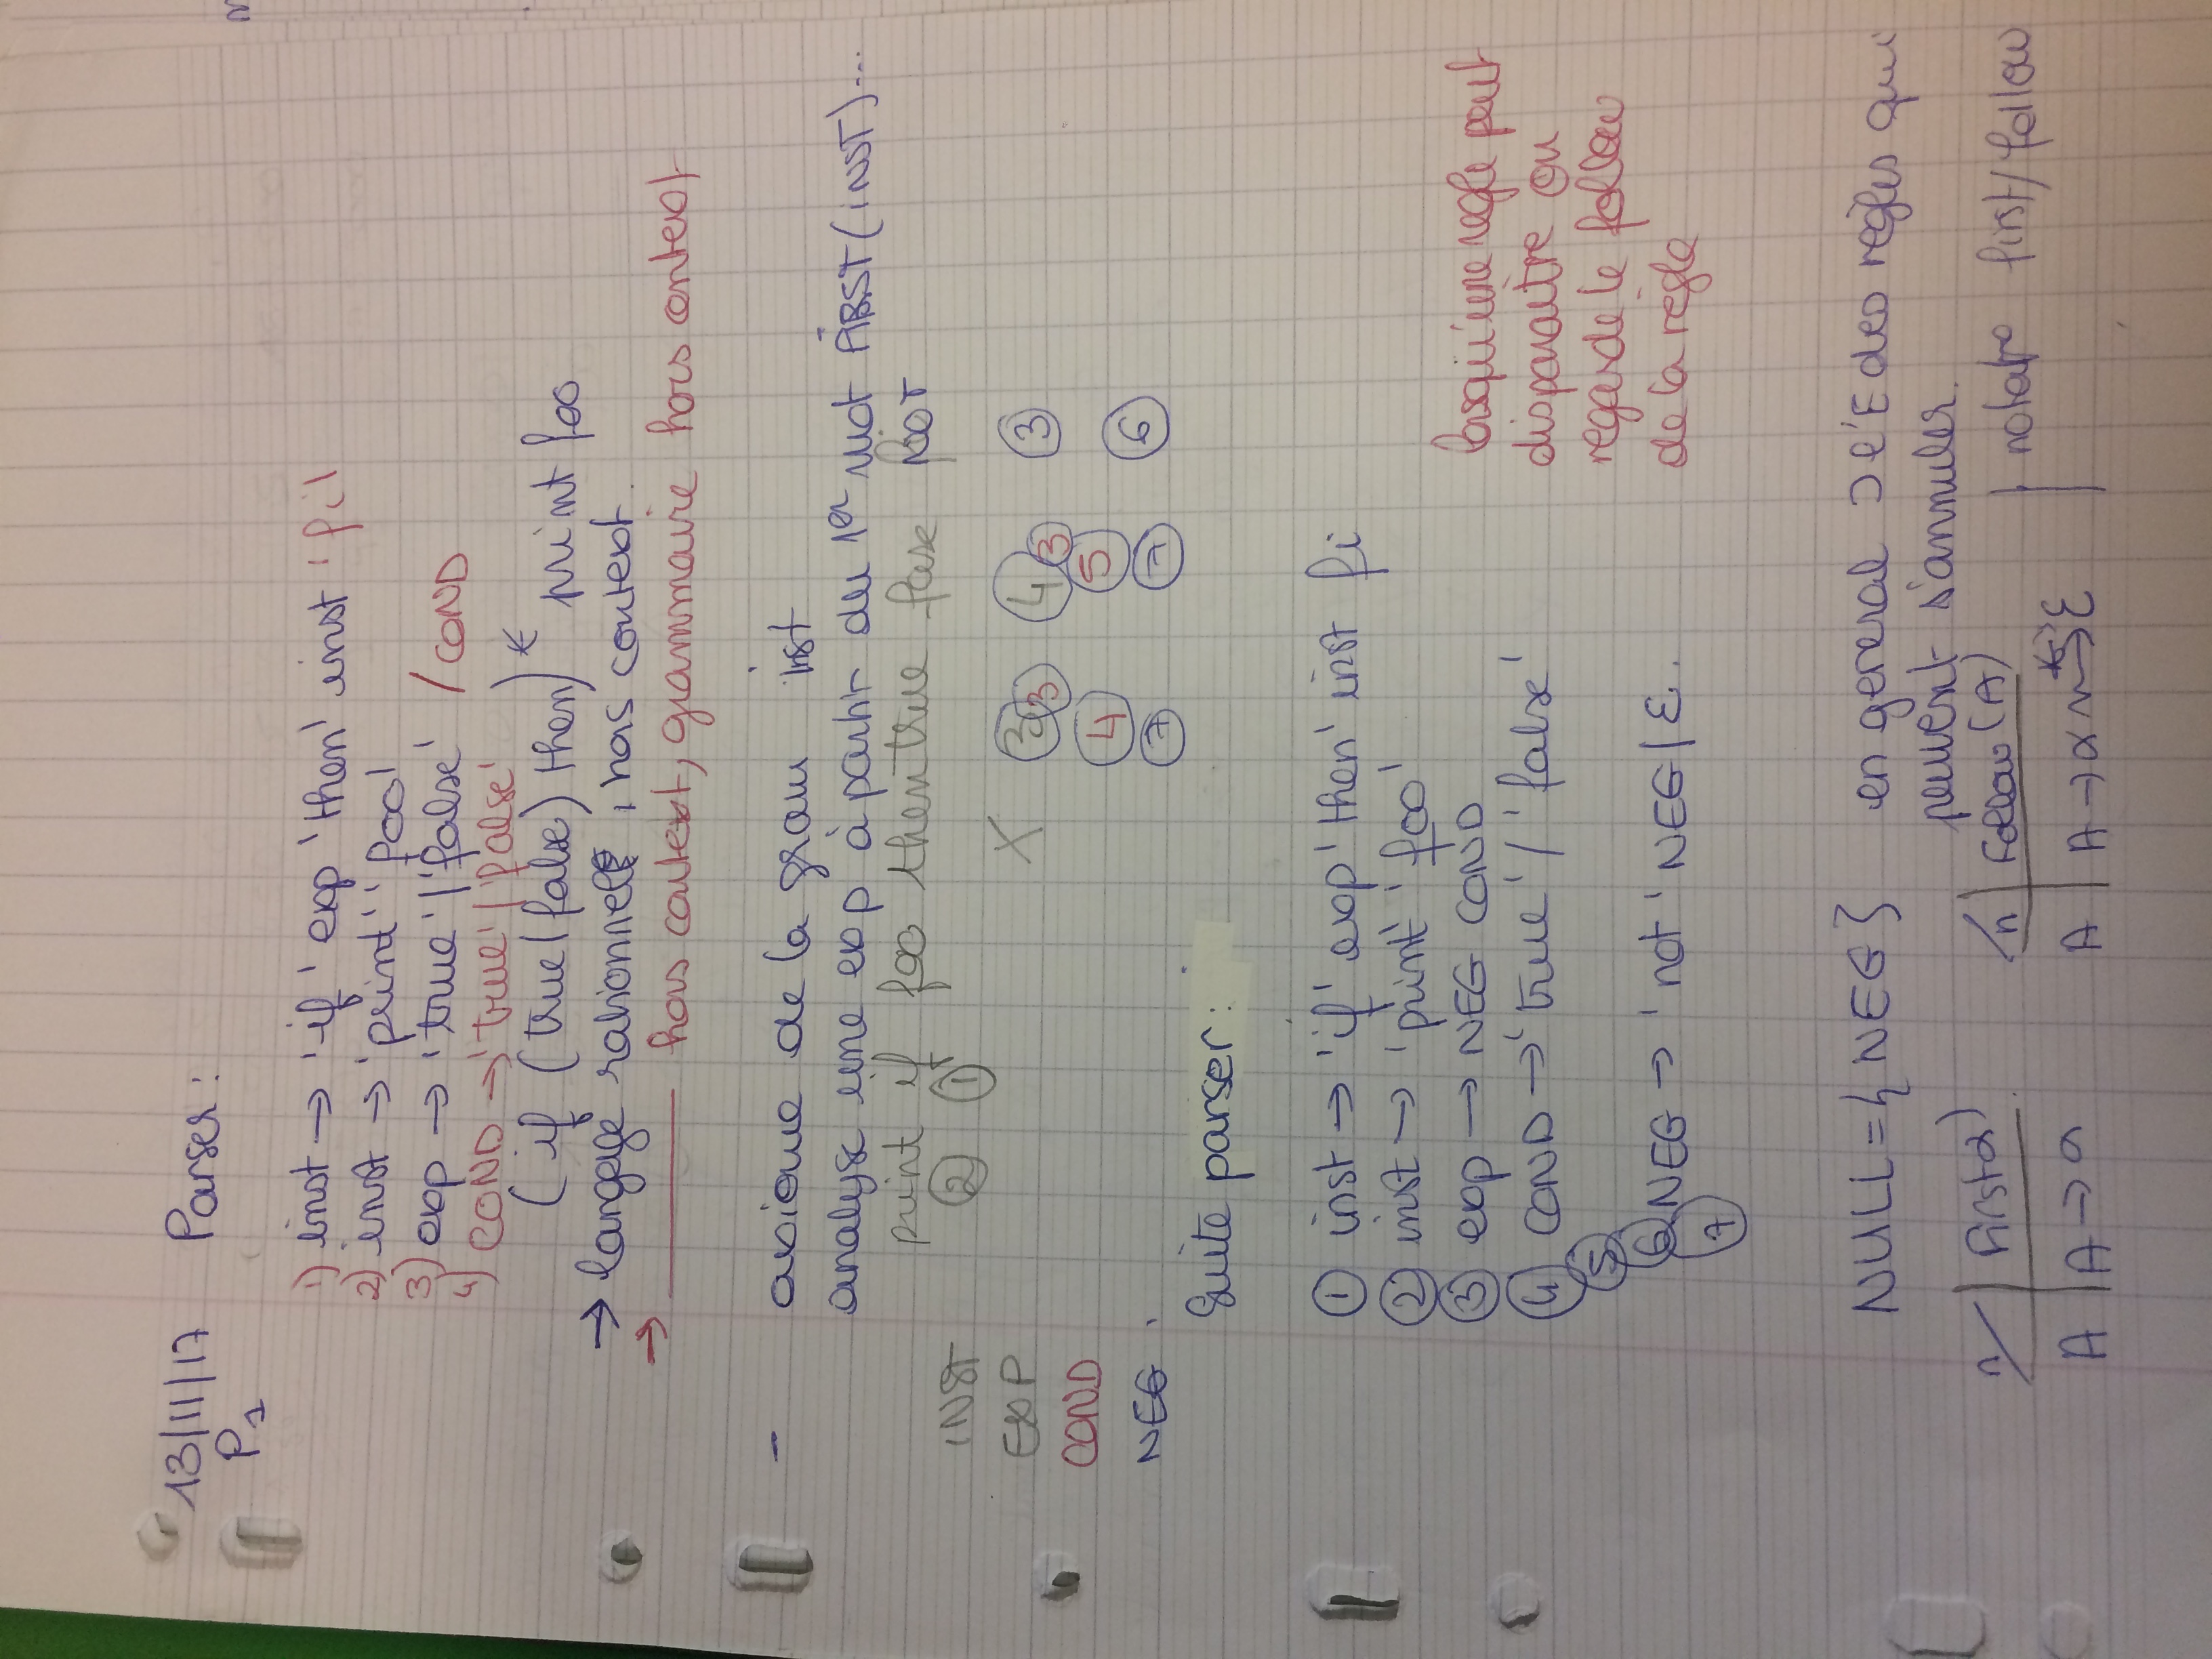 13/11/17 Parser :
P1
1) inst → 'if' exp 'then' inst 'fi'
2) inst → 'print' 'foo'
3) exp → 'true' / 'false' / COND
4) COND → 'true' / 'false'
(if (true/false) then)* print foo
→ langage rationnel, hors context.
→ ——— hors context, grammaire hors context
- axiome de la gram inst
analyse une exp à partir du 1er mot FIRST(INST)...
print if foo then true false NOT
INST 2 1
EXP X 3 3 4 3 3
COND 4 5
NEG 7 7 6
Suite parser :
1 inst → 'if' exp 'then' inst fi
2 inst → 'print' 'foo'
3 exp → NEG COND
4 COND → 'true' / 'false'
5
6 NEG → 'not' NEG / ε.
7
lorsqu'une regle peut
disparaître on
regarde le follow
de la règle
NULL = { NEG } en general ⊃ l'E des règles qui
peuvent s'annuler.
n First α) n Follow (A) first/follow
A A → α A A → α n →* ε